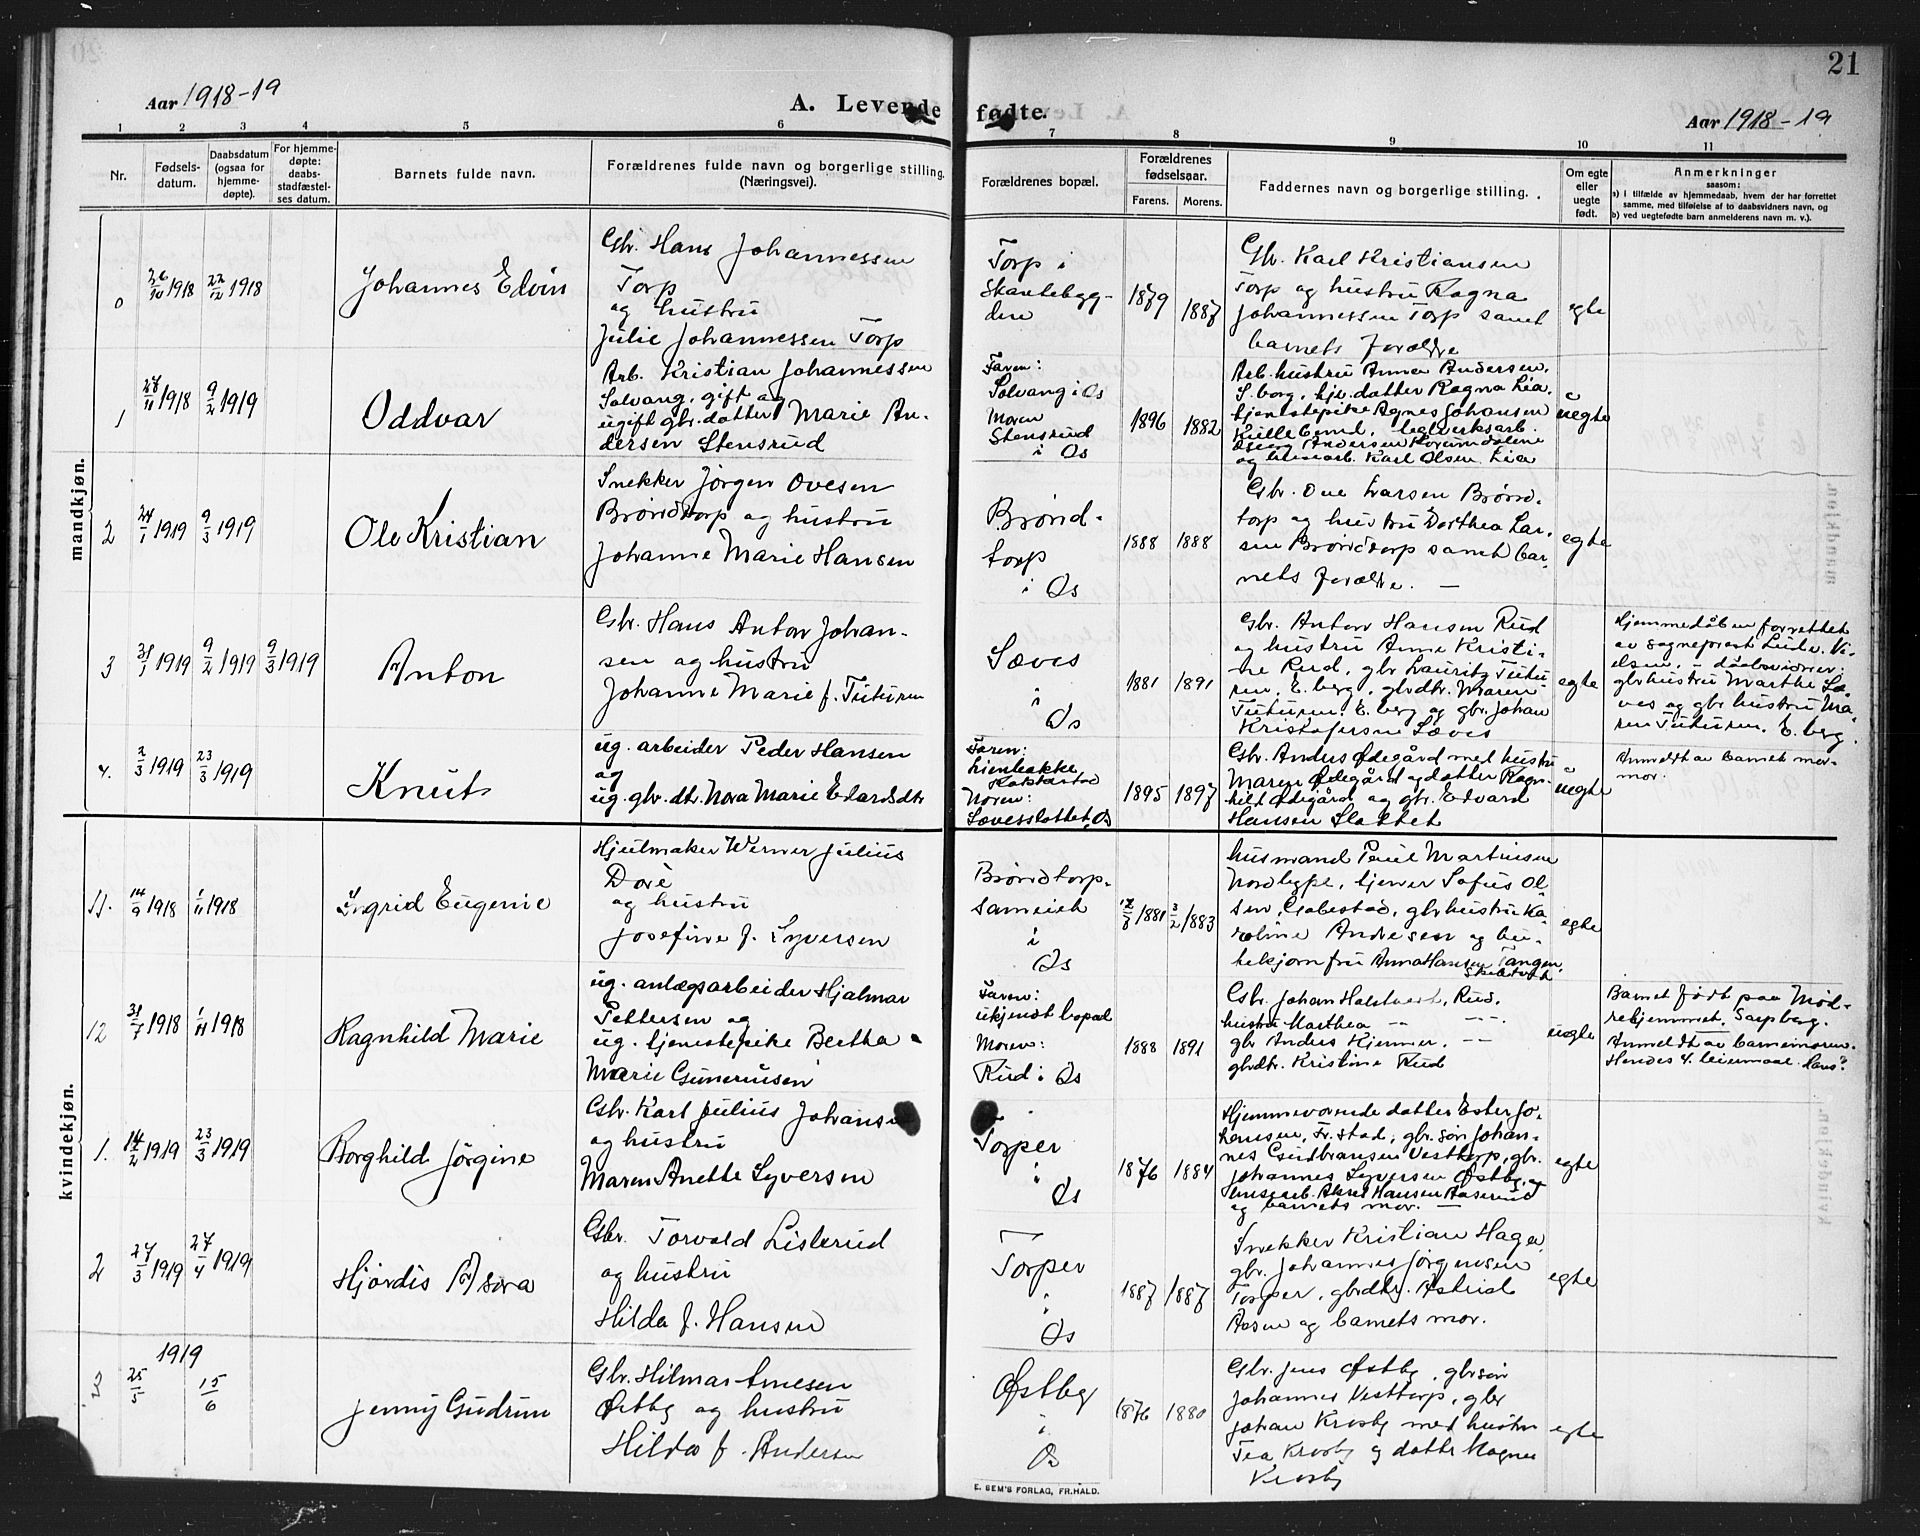 21
Aar 1918-19
A. Levende fødte.
Aar 1918-19
1 2 3 4 5 6 7 8 9 10 11
Nr.
Fødsels-
datum.
Daabsdatum
(ogsaa for
hjemme-
døpte).
For hjemme-
døpte:
daabs-
stadfæstel-
ses datum.
Barnets fulde navn.
Forældrenes fulde navn og borgerlige stilling.
(Næringsvei).
Forældrenes bopæl.
Forældrenes
fødselsaar.
Farens. Morens.
Faddernes navn og borgerlige stilling.
Om egte
eller
uegte
født.
Anmerkninger
saasom:
a) i tilfælde av hjemmedaab, hvem der har forrettet
samme, med tilføielse af to daabsvidners navn, og
b) ved uegtefødte barn anmelderens navn m. v.).
mandkjøn.
0
26/10 1918
22/12 1918
Johannes Edvin
Gbr. Hans Johannessen
Torp
og hustru
Julie Johannessen Torp
Torp i
Skautebyg-
den
1879
1887
Gbr. Karl Kristiansen
Torp og hustru Ragna
Johannessen Torp samt
barnets forældre
egte
1
27/11 1918
9/2 1919
Oddvar
Arb. Kristian Johannessen
Solvang, gift og
ugift gbr. datter Marie An-
dersen Stensrud
Faren:
Solvang i Os
Moren
Stensrud
i Os
1896
1882
Arb. hustru Anna Andersen,
S.borg, hjv. datter Ragna Lia,
tjenestepike Agnes Johansen
teglverksarb.
Andersen
og Karl Olsen Lia
uegte
2
24/1 1919
9/3 1919
Ole Kristian
Snekker Jørgen Ovesen
Brøndtorp og hustru
Johanne Marie Hansen
Brønd-
torp
i Os
1888
1888
Gbr. Ove Larsen Brønd-
torp og hustru Dorthea Lar-
sen Brøndtorp samt bar-
nets forældre. —
egte
3
31/1 1919
9/2 1919
9/3 1919
Anton
Gbr. Hans Anton Johan-
sen og hustru
Johanne Marie f. Tuturen
Sæves
i
Os
1881
1891
Gbr. Anton Hansen Rud
og hustru Anne Kristi-
ne Rud, gbr. Lauritz Tutu-
ren, E. berg, gbrdtr. Maren
Tuturen, E. berg og gbr. Johan
Kristofersen Sæves
egte
Hjemmedåben forrettet
av sogneprest Lüder Ni-
elsen, - dåbsvidner:
gbrhustru Marthe Sæ-
ves og gbr hustru Ma-
ren Tuturen, E. berg.
4.
2/3 1919
23/3 1919
Knut
ug. arbeider Peder Hansen
og
ug. gbr. dtr. Nora Marie Edvardsdtr
Faren:
Lienbakke
Rakkestad
Moren:
Sævesslottet, Os
1895
1897
Gbr. Anders Ødegård med hustru
Maren Ødegård og datter Ragn-
hild Ødegård og gbr. Edvard
Hansen Slottet
uegte
Anmeldt av barnets mor-
mor.
kvindekjøn.
11.
14/9 1918
1/11 1918
Ingrid Eugenie
Hjulmaker Werner Julius
Dore
og hustru
Josefine f. Syversen
Brøndtorp-
sameiet
i
Os
1881
3/2 1883
husmand Paul Martinsen
Nordbype, tjener Sofus Ol-
sen, Gabestad, gbrhustru Ka-
roline Andresen og bu-
tikjomfru Anna Hansen Tangen,
egte
12
31/7 1918
1/11 1918
Ragnhild Marie
ug. anlægsarbeider Hjalmar
Pettersen og
ug. tjenestepike Bertha
Marie Gunerusen
Faren:
ukjendt bopæl
Moren:
Rud i Os
1888
1891
Gbr. Johan Holstvedt, Rud,
hustru Marthea -- ---
gbr Anders Hjemmer, --
gbrdtr. Kristine Rud
uegte
Barnet født paa Mød-
rehjemmet, Sarpborg.
Anmeldt av barnemoren.
Hendes 4. leiermaal. Hans ?
1.
14/2 1919
23/3 1919
Borghild Jørgine
Gbr. Karl Julius Johansen
og hustru
Maren Anette Syversen
Torper
i
Os
1876
1884
Hjemmeværende datter Ester Jo-
hansen, Fr.stad, gbr. søn Johan-
nes Gudbransen Vesttorp, gbr.
Johannes Syversen Østby, og
Aksel Hansen Aaserud
og barnets mor. —
egte
2
27/3 1919
27/4 1919
Hjørdis Asora
Gbr. Torvald Listerud
og hustru
Hilda f. Hansen
Torper
i
Os
1887
1887
Snekker Kristian Haga,
gbr. Johannes Jørgensen
Torper, gbrdtr. Astrid
Aasen og barnets mor.
egte
3
1919
25/5
15/6
Jenny Gudrun
Gbr. Hilmar Arnesen
Østby og hustru
Hilda f. Andersen
Østby
i
Os
1876
1880
Gbr. Jens Østby, gbrsøn
Johannes Vesttorp, gbr
Johan Krosby med hustru
Tea Krosby og datter Magna
Krosby
egte
E. SEM'S FORLAG, FR.HALD.